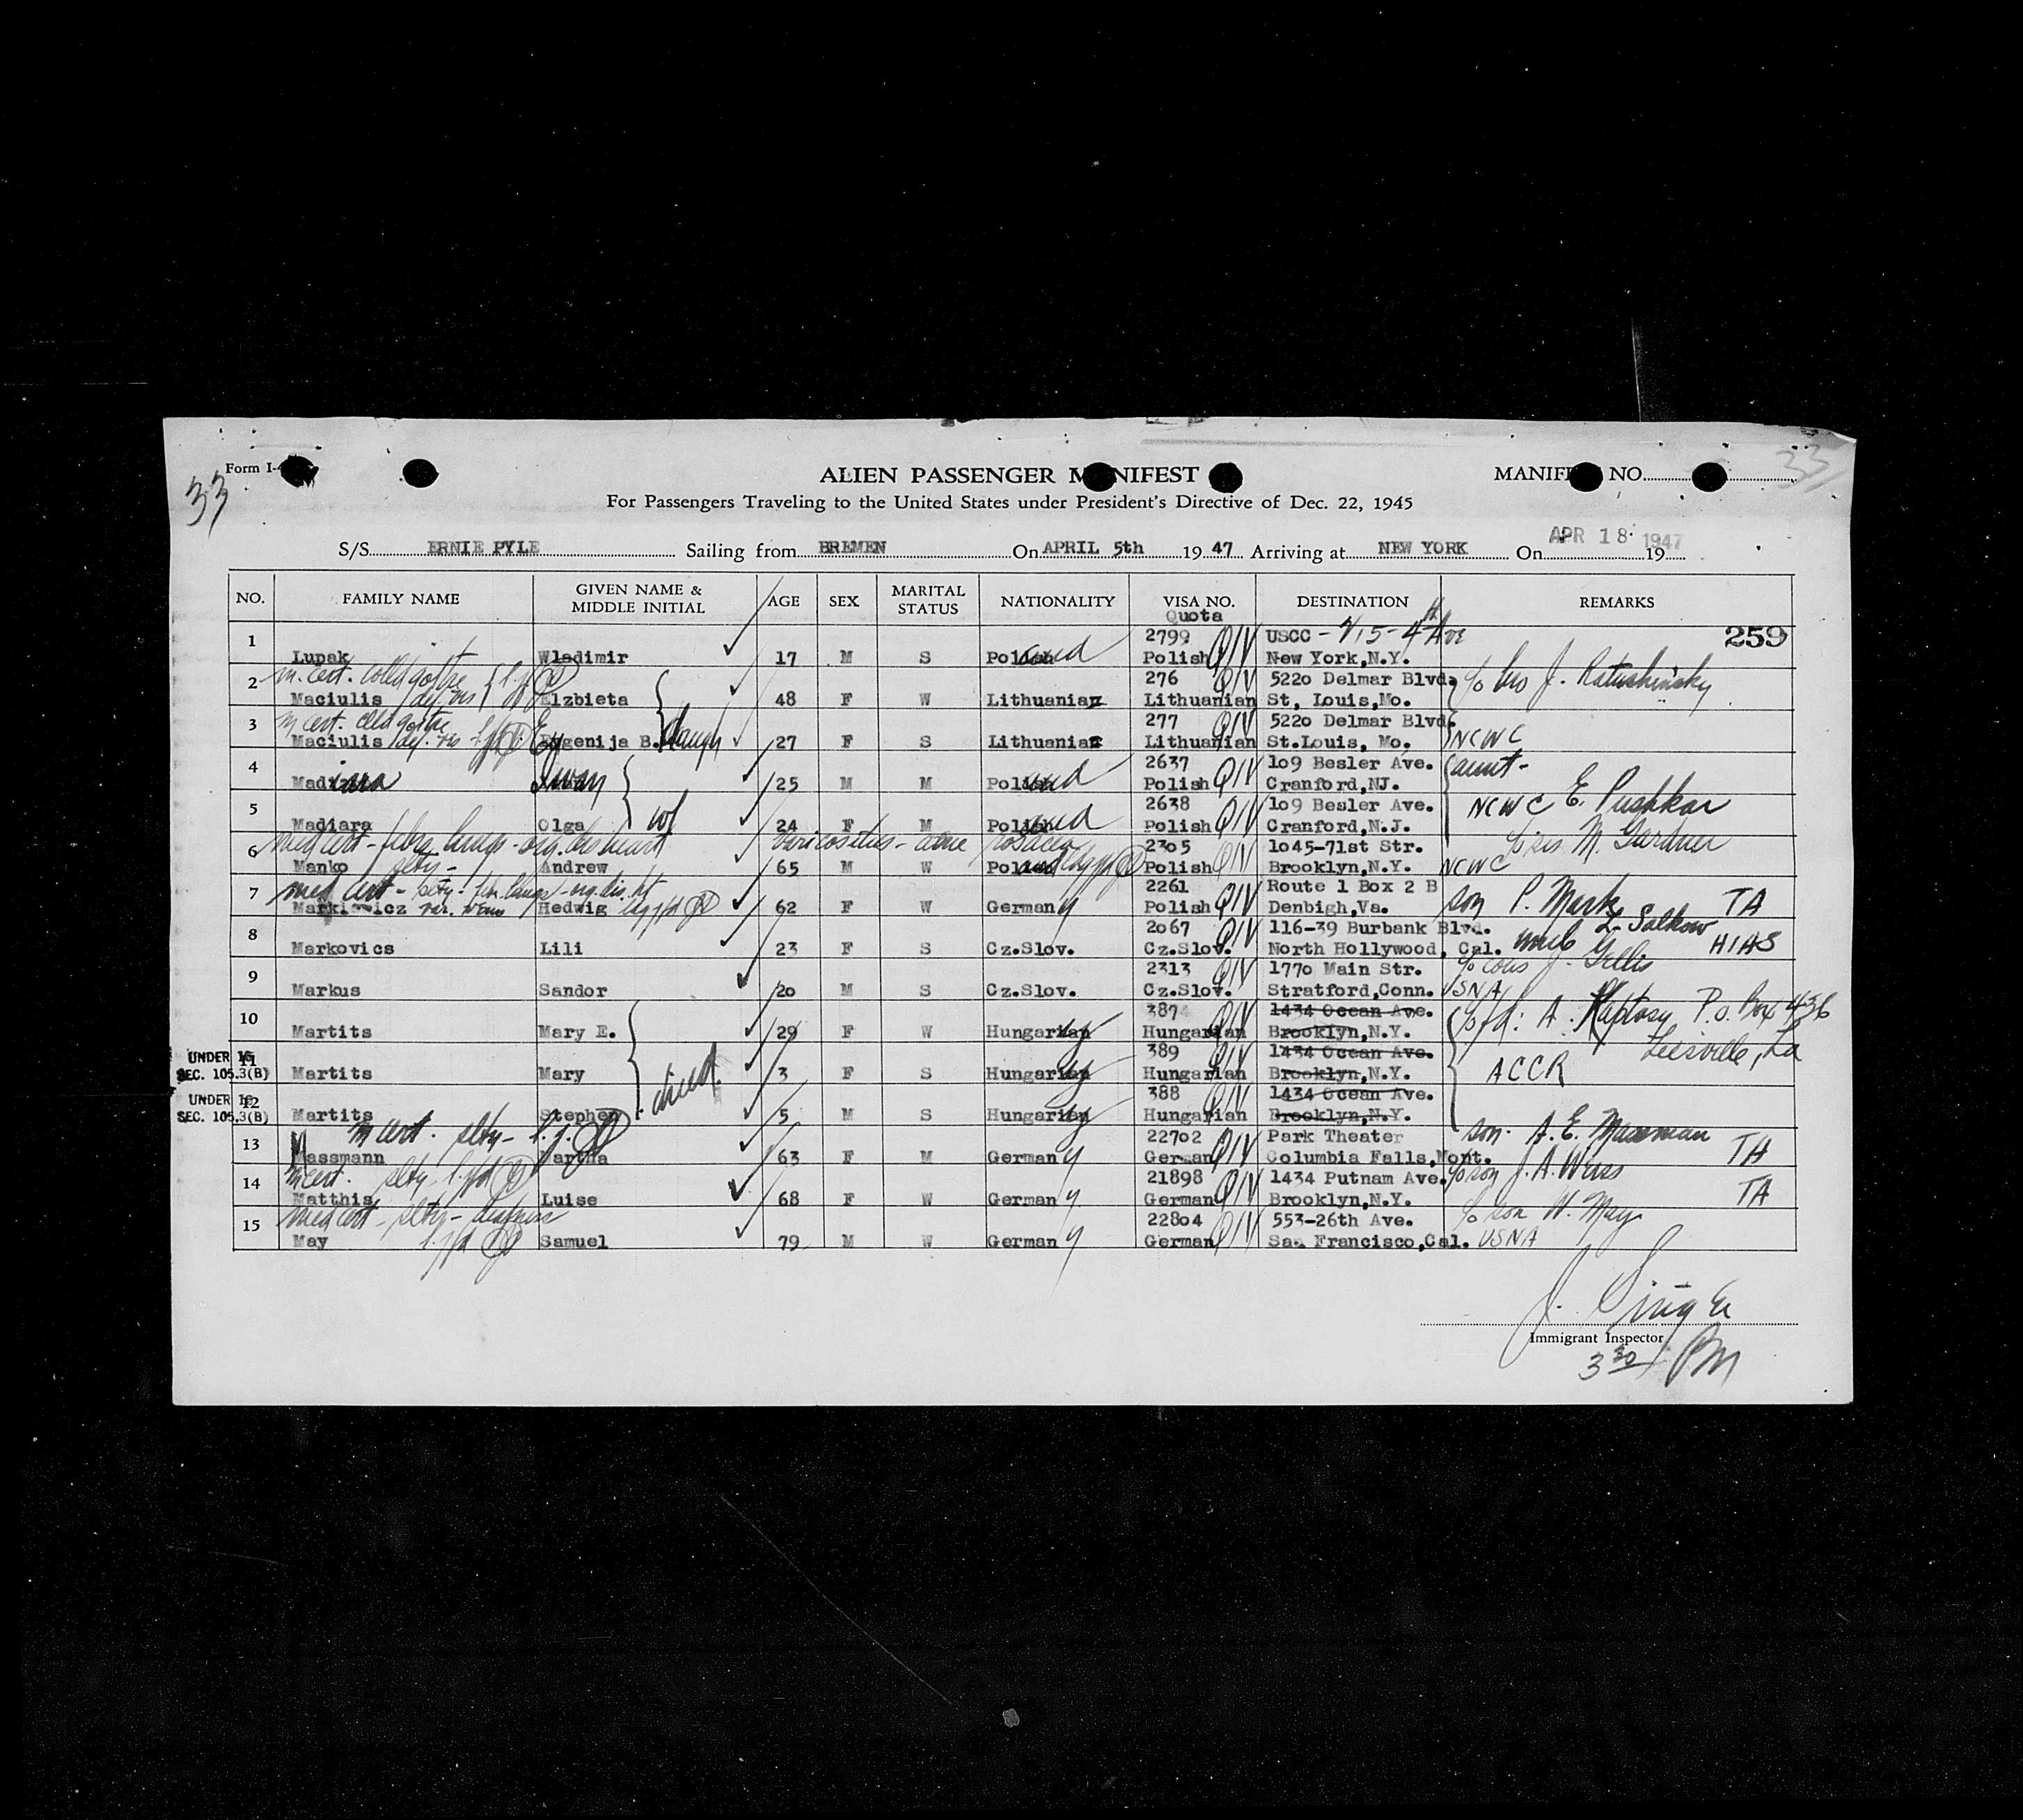 Form I-4
33
ALIEN PASSENGER MANIFEST
MANIFEST NO.
33
For Passengers Traveling to the United States under President's Directive of Dec. 22, 1945
S/S ERNIE PYLE Sailing from BREMEN On APRIL 5th 19 47 Arriving at NEW YORK On APR 18 1947 19
NO. FAMILY NAME GIVEN NAME & MIDDLE INITIAL AGE SEX MARITAL STATUS NATIONALITY VISA NO. Quota DESTINATION REMARKS
259
1 Lupak Wladimir 17 M S Poland 2799 Polish QIV USCC - 215 - 4th Ave New York,N.Y.
m. cert. colld goitre
2 Maciulis Elzbieta 48 F W Lithuanian 276 Lithuanian QIV 5220 Delmar Blvd. St, Louis,Mo. c/o bro J. Ratushinsky
m cert. colld goitre
3 Maciulis Eugenija B. daugh 27 F S Lithuanian 277 Lithuanian QIV 5220 Delmar Blvd. St.Louis, Mo. NCWC
4 Madiara Iwan 25 M M Poland 2637 Polish QIV 109 Besler Ave. Cranford,NJ. aunt - E. Pushkar
5 Madiara Olga wf 24 F M Poland 2638 Polish QIV 109 Besler Ave. Cranford,N.J. NCWC
med cert - fibro. lungs - org. dis heart varicosities - acne rosacea
6 Manko slty - Andrew 65 M W Poland 2305 Polish QIV 1045-71st Str. Brooklyn,N.Y. c/o sis M. Gardner NCWC
med cert - slty - fib. lungs - org. dis. ht
7 Markiewicz var. veins Hedwig 62 F W Germany 2261 Polish QIV Route 1 Box 2 B Denbigh,Va. son P. Mark TA
8 Markovics Lili 23 F S Cz.Slov. 2067 Cz.Slov. QIV 116-39 Burbank Blvd. North Hollywood, Cal. uncle L. Salkow HIAS
9 Markus Sandor 20 M S Cz.Slov. 2313 Cz.Slov. QIV 1770 Main Str. Stratford,Conn. c/o cous J. Gellis USNA
10 Martits Mary E. 29 F W Hungary 387 Hungarian QIV 1434 Ocean Ave. Brooklyn,N.Y. P.O. Box 436 Leesville, La
UNDER 16 SEC. 105.3(B) 11 Martits Mary 3 F S Hungary 389 Hungarian QIV 1434 Ocean Ave. Brooklyn,N.Y. ACCR
UNDER 16 SEC. 105.3(B) 12 Martits Stephen 5 M S Hungary 388 Hungarian QIV 1434 Ocean Ave. Brooklyn,N.Y.
m cert. slty -
13 Massmann Martha 63 F M Germany 22702 German QIV Park Theater Columbia Falls,Mont. son - A. E. Massman TA
m cert. slty
14 Matthis Luise 68 F W Germany 21898 German QIV 1434 Putnam Ave. Brooklyn,N.Y. c/o son J. A. Weiss TA
med cert - slty - deafness
15 May Samuel 79 M W Germany 22804 German QIV 553-26th Ave. San Francisco,Cal. c/o son W. May USNA
J. Singer
Immigrant Inspector
3 30 PM